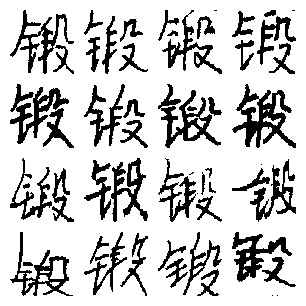 锻锻锻锻
锻锻锻锻
锻锻锻锻
锻锻锻锻